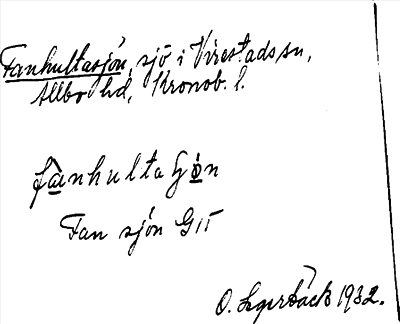 Fanhultasjön, sjö i Virestads sn,
Allbo hd, Kronob. l.
fanhultaʃön
Fan sjön G15
O. 1932.